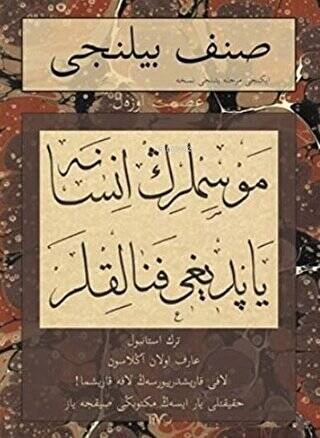 صنف بیلنجی
ایکنجی مرحله یدنجی نسخه
عصمت اوزەل
موسملرڭ انسانه
یاپدیغی فنالقلر
ترك استانبول
عارف اولان آڭلاسون
لافی قاریشدیریورسەڭ لافه قاریشما!
حقیقتلی یار ایسەڭ مکتوبڭی صیقجه یاز
TİYO